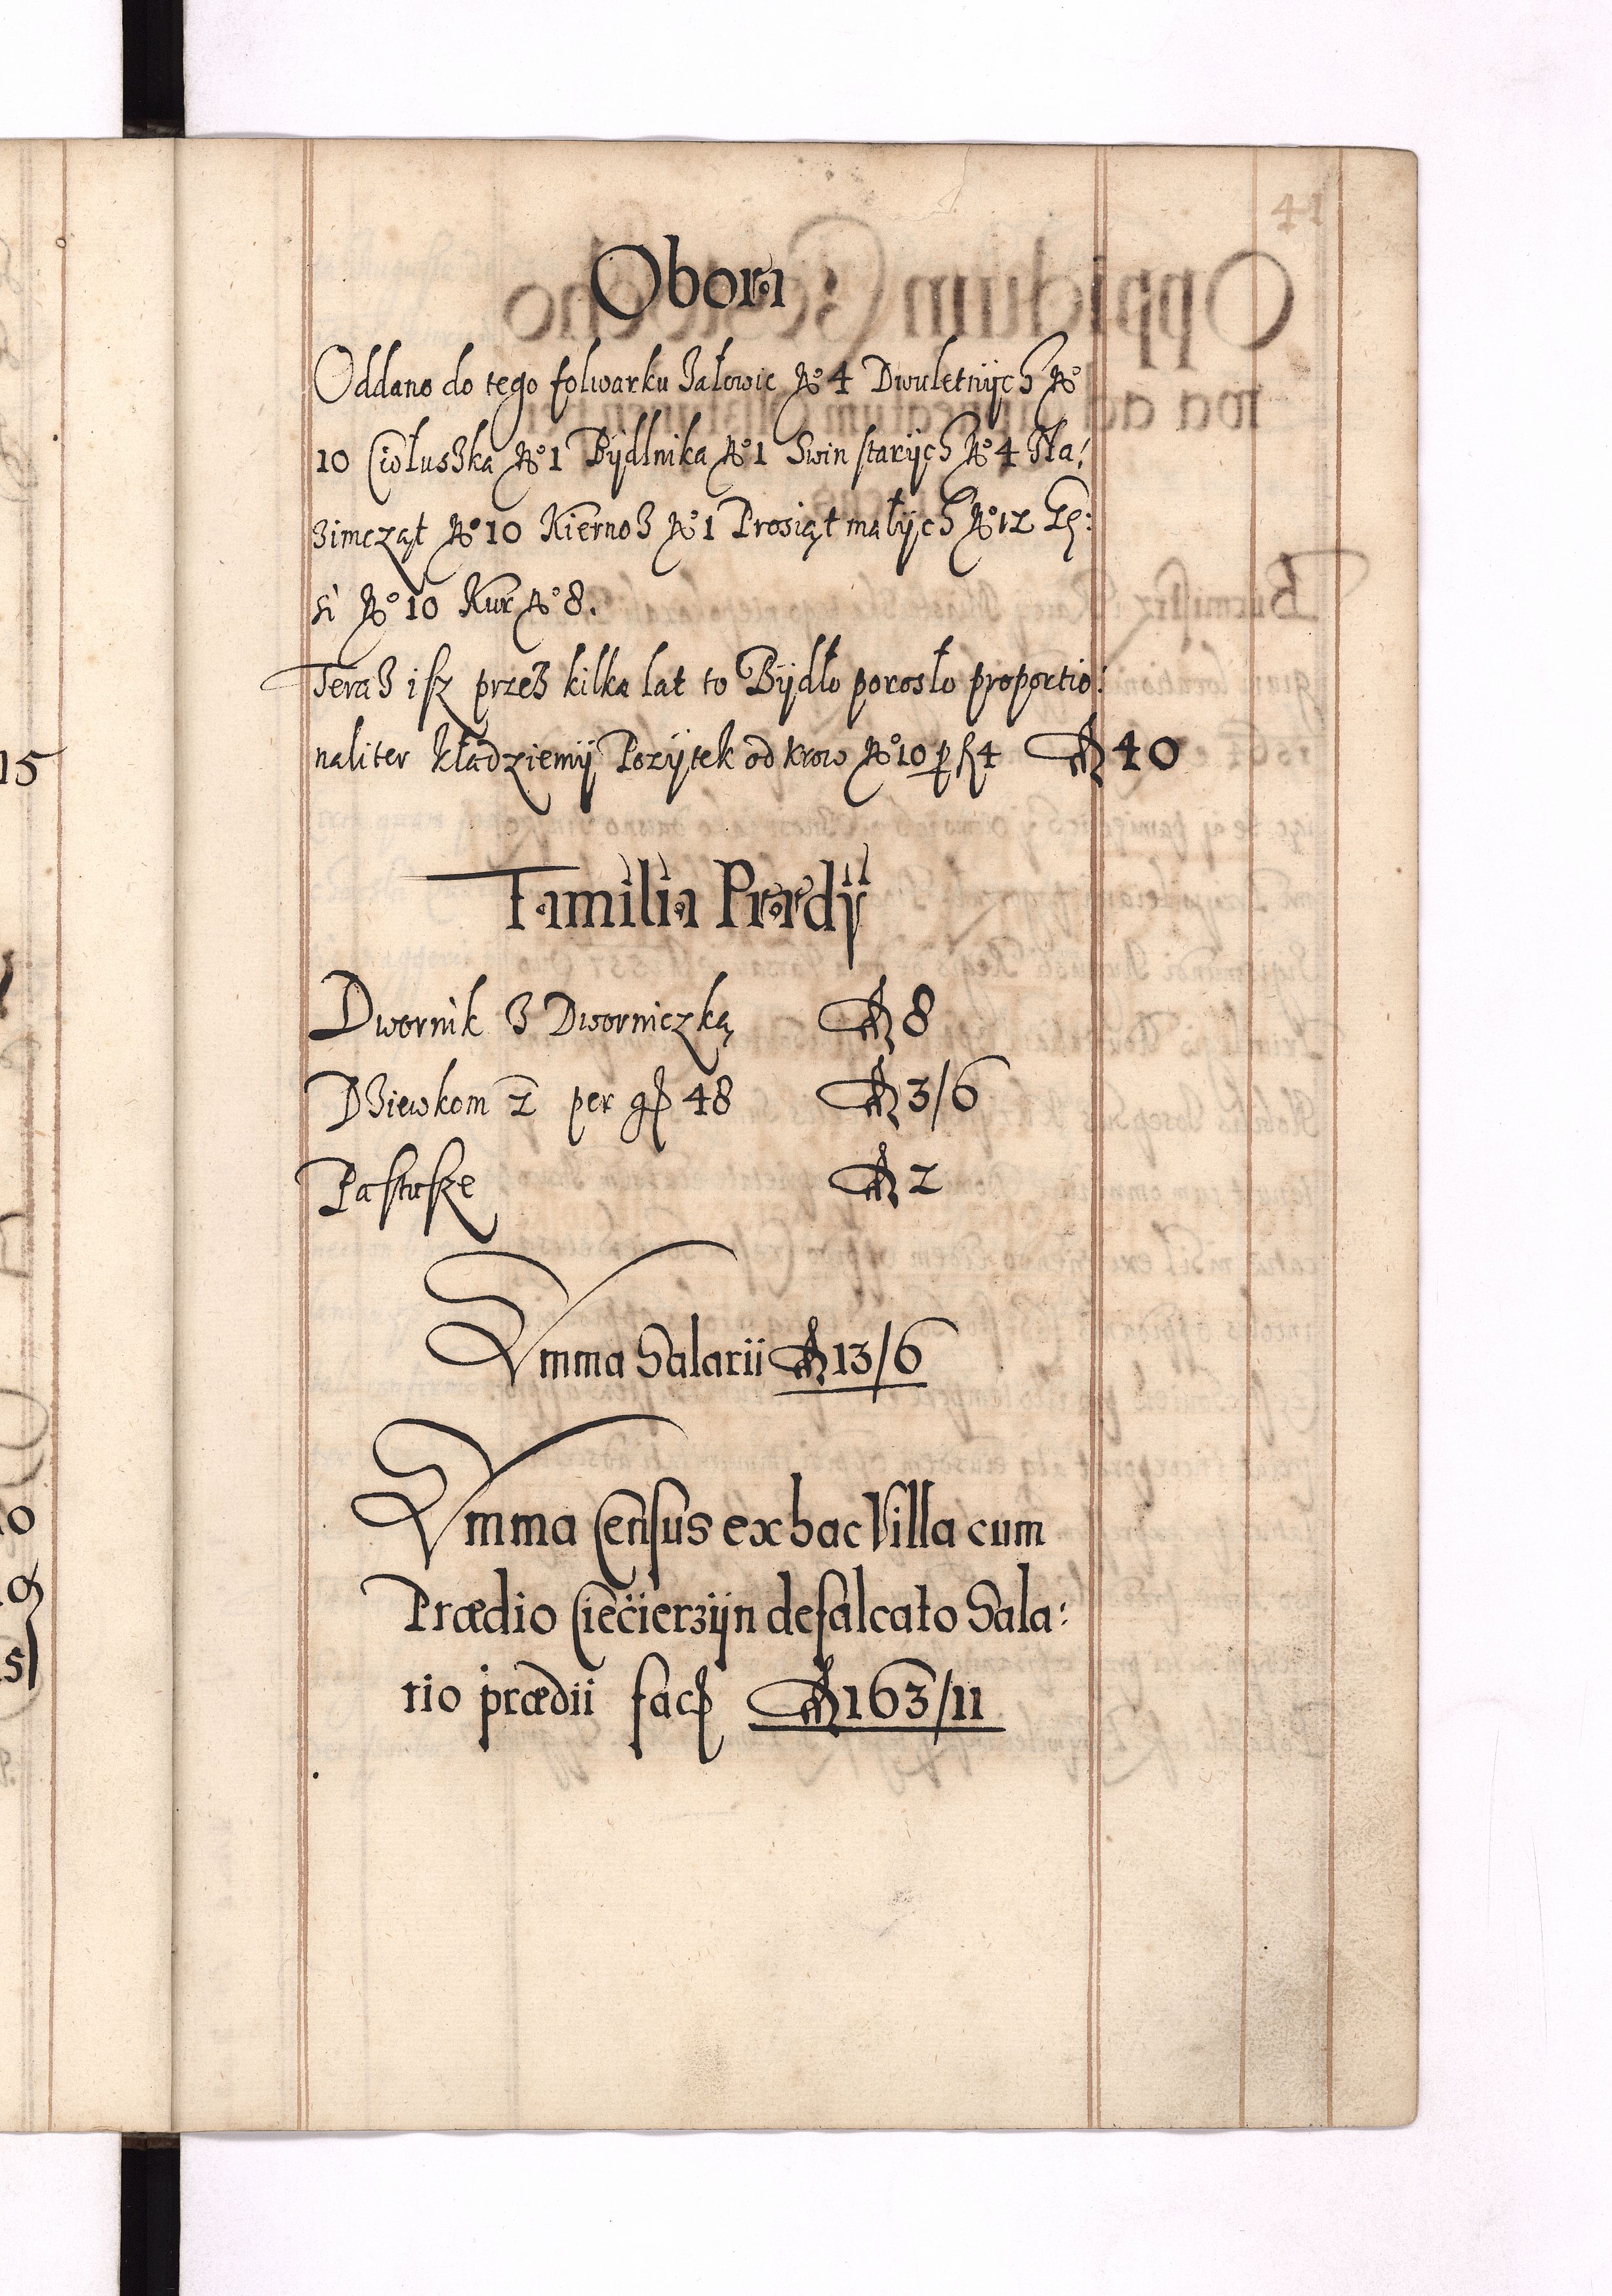 41
Obora
Oddano do tego folwarku Jałowic No 4 Dwuletnÿch No
10 Ciołuszka No 1 Bÿdlnika No 1 Swin starÿch No 4 Na:
zimcząt No 10 Kiernoz No 1 Prosiąt małÿch No 12 Gę:
si No 10 Kur No 8.
Teraz isz przez kilka lat to Bÿdło porosło proportio:
naliter kładziemÿ Pozÿtek od krow No 10 p fl 4 fl 40
Familia Prædÿ
Dwornik z Dworniczką fl 8
Dziewkom 2 per gr 48 fl 3/6
Pastusze fl 2
Summa Salarii fl 13/6
Summa Census ex hac Villa cum
Prædio Ciecierzÿn defalcato Sala:
rio prædii facit fl 163/11
15